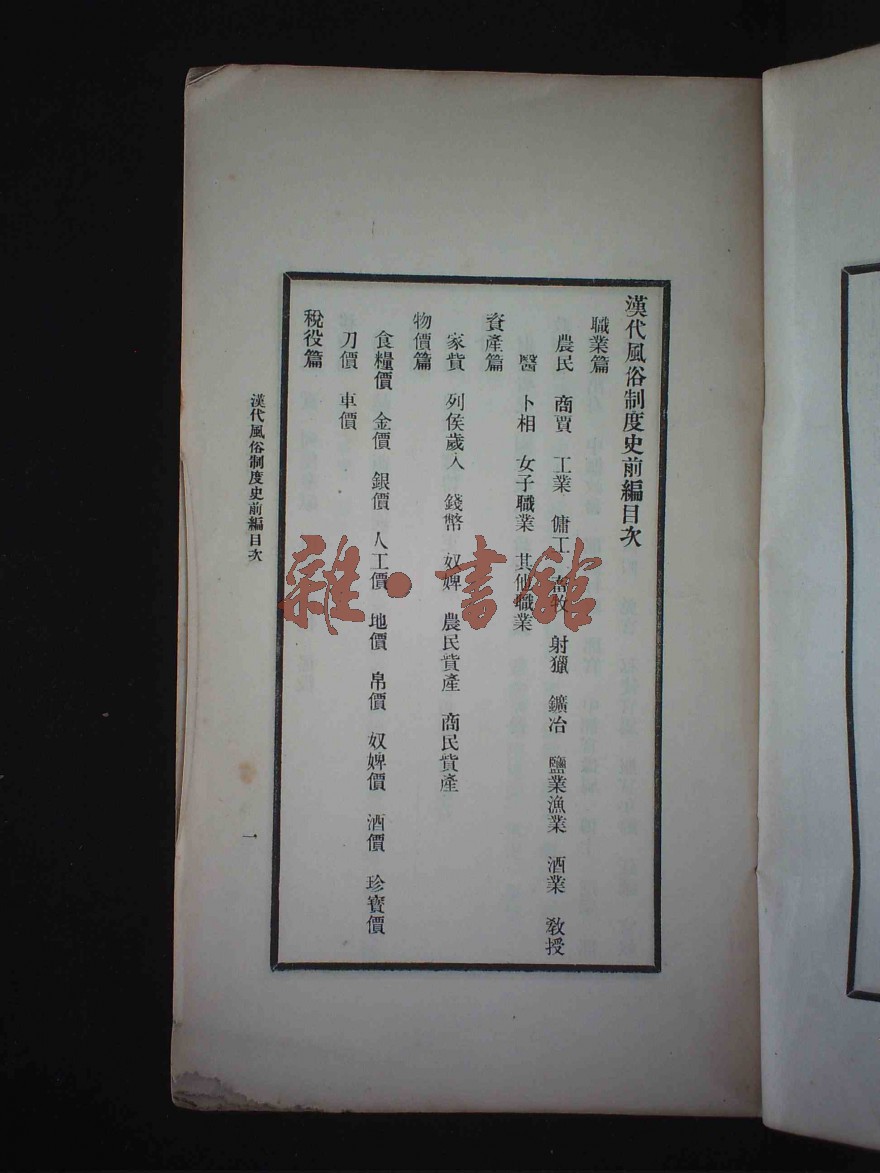 漢代風俗制度史前編目次
職業篇
農民 商賈 工業 傭工 畜牧 射獵 鑛冶 鹽業漁業 酒業 敎授
醫 卜相 女子職業 其他職業
資產篇
家貲 列侯歲入 錢幣 奴婢 農民貲產 商民貲產
物價篇
食糧價 金價 銀價 人工價 地價 帛價 奴婢價 酒價 珍寶價
刀價 車價
稅役篇
漢代風俗制度史前編目次
一
雜·書館